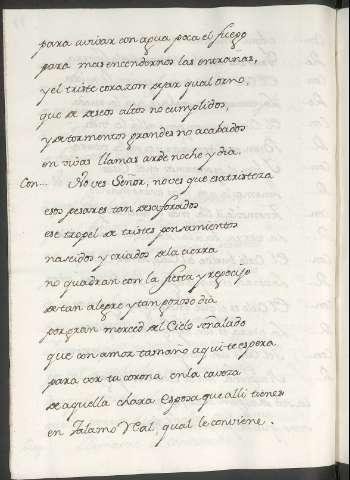 para avivar con agua poca el fuego
para mas encendernos las entrañas,
y el triste corazon dejar qual orno,
que de deseos altos no cumplidos,
y de tormentos grandes no acabados
en vivas llamas arde noche y dia.
Con... No ves Señor, no ves que esa tristeza
esos pesares tan desaforados
ese tropel de tristes pensamientos
nascidos y criados de la tierra
no quadran con la fiesta y regocijo
de tan alegre y tan gozoso dia
por gran merced del Cielo señalado
que con amor tamaño aqui te espera
para ver tu corona en la caveza
de aquella chara Esposa que alli tienes
en Talamo Real, qual le conviene.